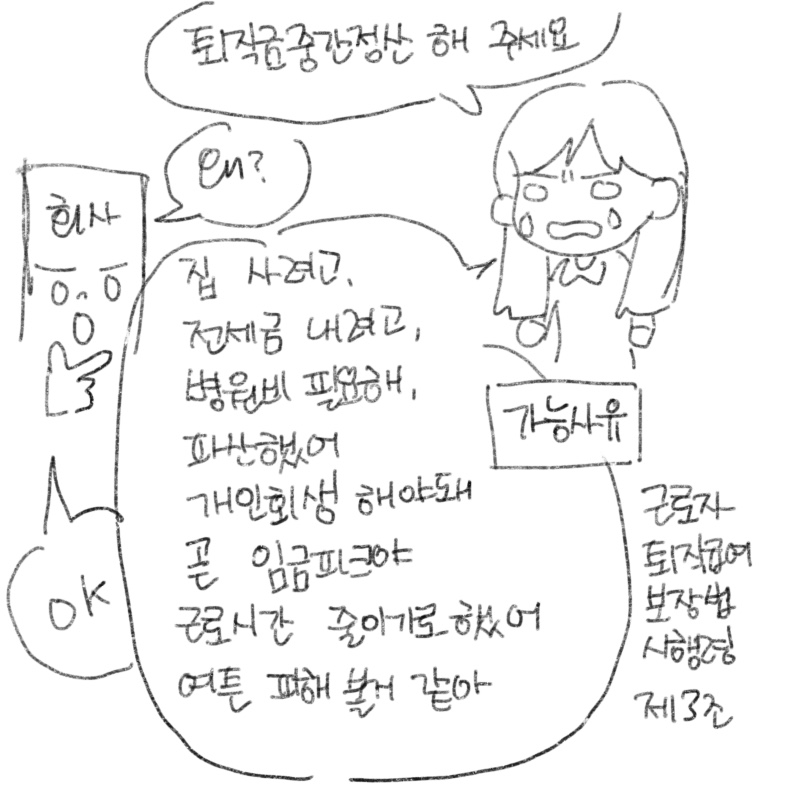 퇴직금중간정산 해 주세요
왜?
회사
집 사려고,
전세금 내려고,
병원비 필요해,
파산했어
개인회생 해야돼
곧 임금피크야
근로시간 줄이기로 했어
여튼 피해 볼거 같아
가능사유
OK
근로자
퇴직급여
보장법
시행령
제3조